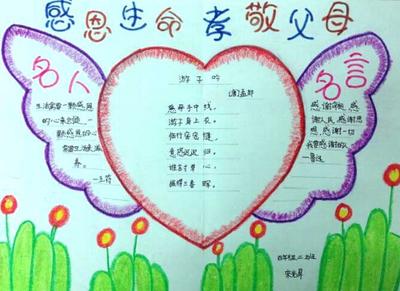 感恩生命 孝敬父母
名人
生活需要一颗感恩
的心来创造，一
颗感恩的心
需要生活来滋
养。
—王符
游子吟
孟郊
慈母手中线，
游子身上衣。
临行密密缝，
意恐迟迟归。
谁言寸草心，
报得三春晖。
名言
感谢
谢人民，感谢思
想，感谢一切
我要感谢的。
—鲁迅
四年级二班